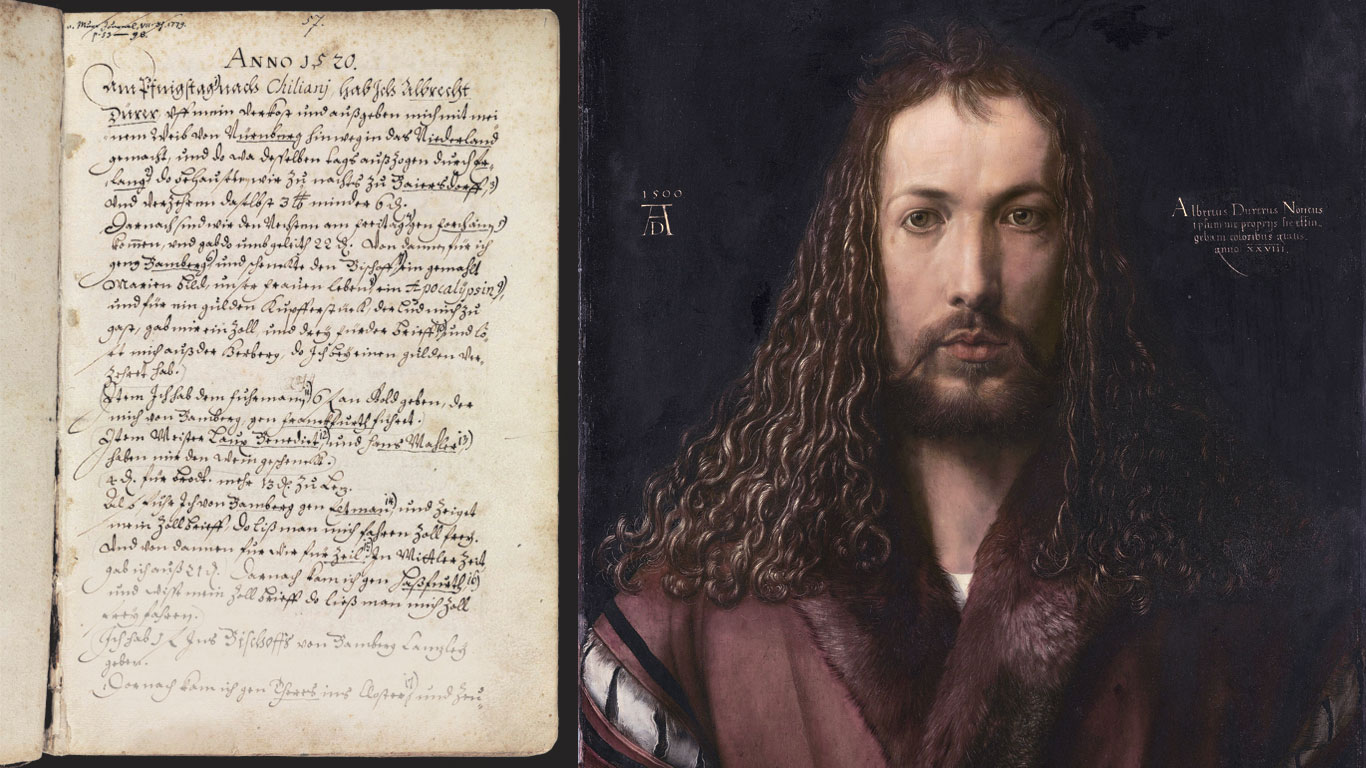 57.
ANNO 1520.
Am Pfingstag nach Chiliani, hab Ich Albrecht
Dürer, vff mein verkost und außgeben mich mit mei
nem Weib von Nürnberg hinweg in das Niederland
gemacht, und do wir desselben tags außzogen durch Er-
lang, do behausten wir zu nachts zu Baiersdorff, 3)
und verzehrten daselbst 3 minder 6 ₰.
Darnach sind wir den nechsten am freitag gen Forchaim
kommen, und gab do umb geleith 22 ₰. Von dannen fuhr ich
gen Bamberg, und schenckte den Bischoff ein gemahlt
Marien bild, unser Frauen leben, ein Apocalypsin,
und für ein gulden Kupfferstück, der lud mich zu
gast, gab mir ein Zoll und drey fürder brieff und lö-
st mich auß der Herberg, do Ich bey einen gulden ver-
zehret hab.
Item Ich hab dem fuhrmann 6 an Gold geben, der
mich von Bamberg gen Franckfurth führet.
Item Meister Laux Benedict, und Hans Mahler 13)
haben mir den Wein geschenckt.
4 ₰. für brodt. mehr 13 ₰ zu Lez.
Also fuhr Ich von Bamberg gen Eltman, und zeiget
mein Zollbrieff, do ließ man mich fahren Zoll frey.
Und von dannen fuhr wir für Zeil, In Mittler Zeit
gab ich auß 21 ₰. Darnach kam ich gen Haßfurth 16)
und wiß mein Zoll brieff do ließ man mich Zoll
frey fahren.
Ich hab 1 Ins Bischoffs von Bamberg Canzley
geben.
Darnach kam ich gen Theres ins Closter, und Zeu-
1500
AD
Albertus Durerus Noricus
ipsum me proprijs sic effin-
gebam coloribus ætatis
anno XXVIII.